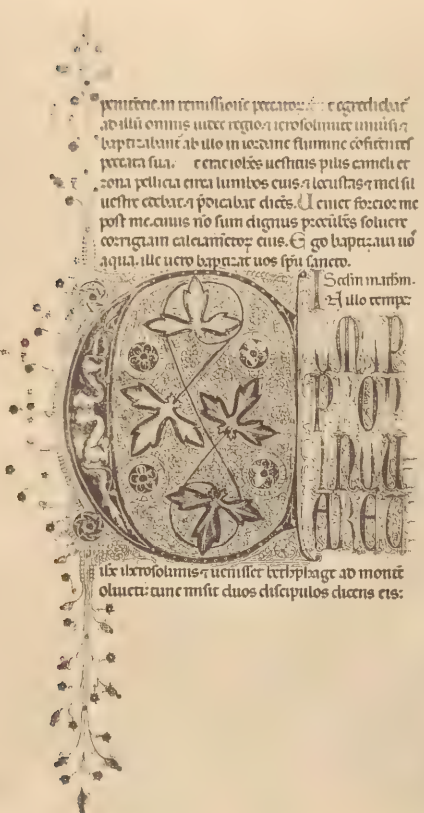 penitẽcie. in remissionẽ peccatoꝝ. t egrediebat̃
ad illũ omnis iudee regio ⁊ ierosolimite uniũsi ⁊
baptizabant̃ ab illo in iordane flumine cõfitentes
peccata sua. t erat ioh̃es uestitus pilis cameli et
zona pellicia circa lumbos eius. ⁊ locustas ⁊ mel sil
uestre edebat. ⁊ p̃dicabat dicẽs. Ueniet forcior me
post me. cuius nõ sum dignus procũbẽs soluere
corrigiam calciamẽtoꝝ eius. Ego baptizaui uo᷒
aqua. ille uero baptizat uos sp̃u sancto.
Scd̃m math̃m.
In illo tempꝛ̃
CUM AP
PROPI
INQUA
RET
ih̃c ih̃erosolimis ⁊ uenisset bethphage ad montẽ
oliueti: tunc misit duos discipulos dicens eis: